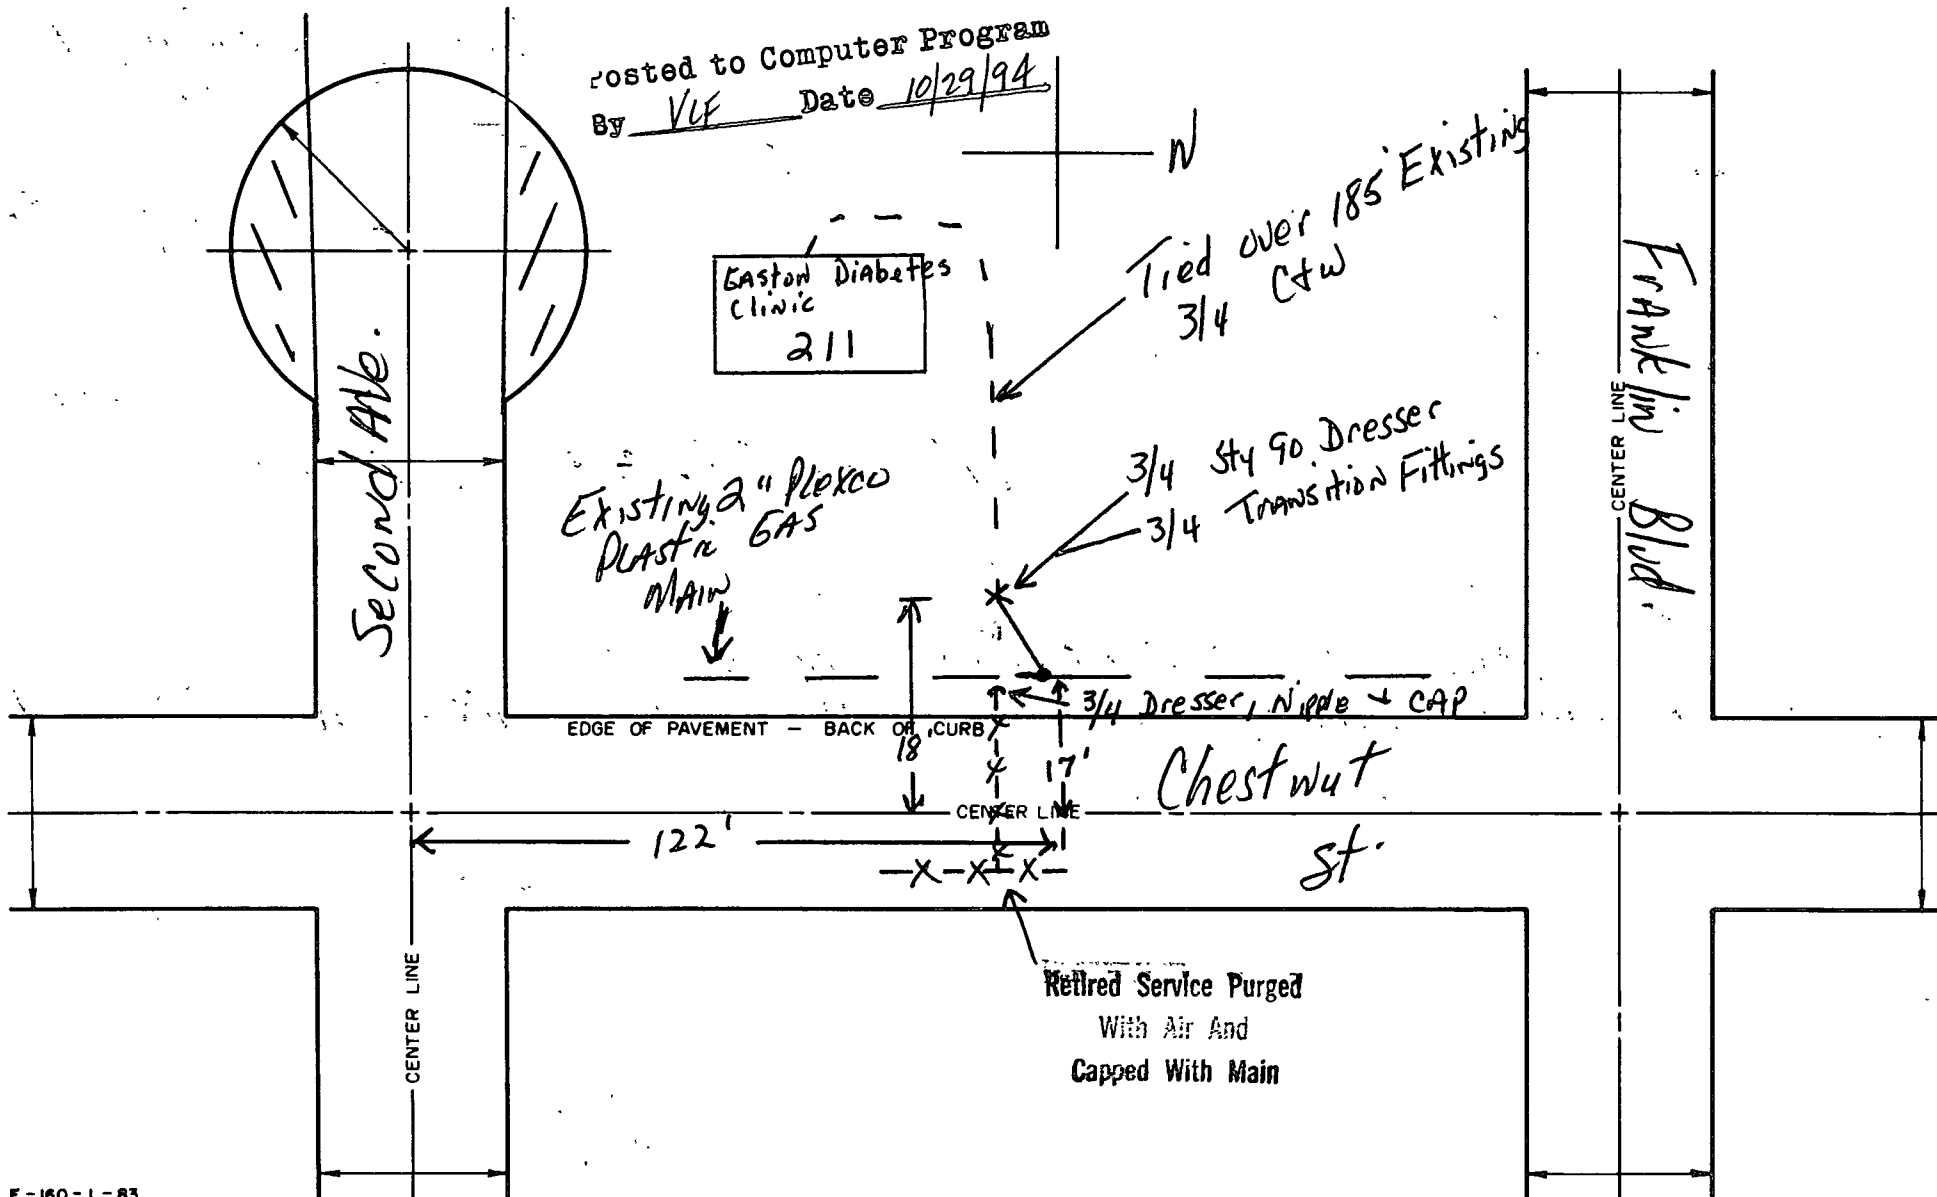 Posted to Computer Program
By VLF Date 10/29/94
N
Tied over 185' Existing
3/4 C+W
Easton Diabetes
Clinic
211
Second Ave.
Franklin Blvd.
CENTER LINE
3/4 Sty 90 Dresser
3/4 Transition Fittings
Existing 2" Plexco
Plastic GAS
MAIN
3/4 Dresser, Nipple + CAP
EDGE OF PAVEMENT – BACK OF CURB
18
17'
Chestnut
St.
CENTER LINE
122'
Retired Service Purged
With Air And
Capped With Main
CENTER LINE
F-160-L-83